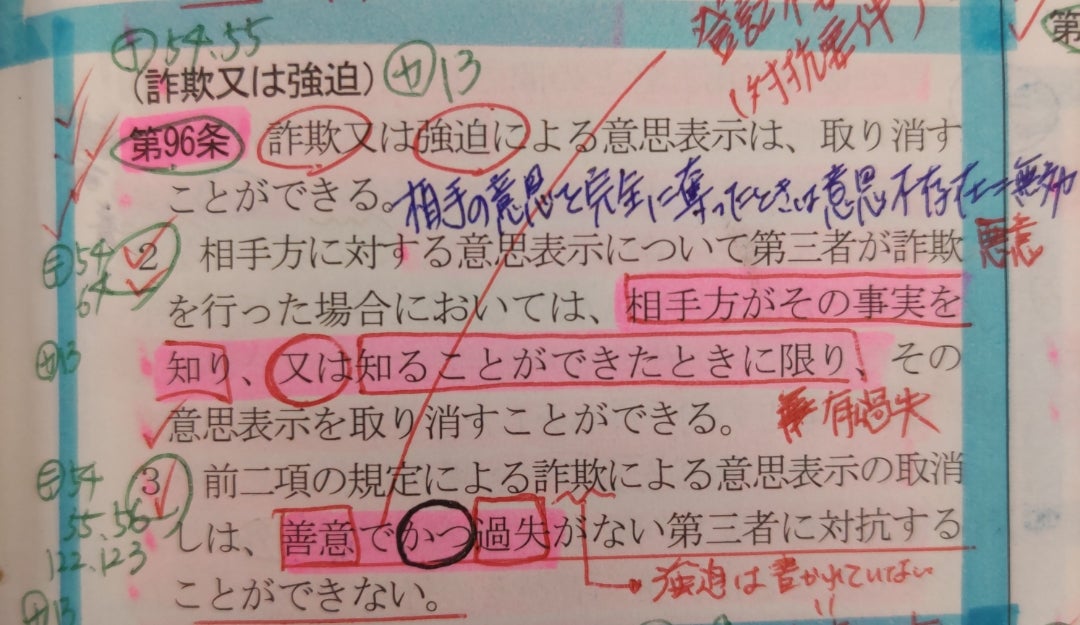 登記不要
(対抗要件)
54.55
(詐欺又は強迫) 13
第96条 詐欺又は強迫による意思表示は、取り消す
ことができる。
相手の意思を完全に奪ったときは意思不存在=無効
54
2 相手方に対する意思表示について第三者が詐欺
悪意
64
を行った場合においては、相手方がその事実を
13
知り、又は知ることができたときに限り、その
意思表示を取り消すことができる。
有過失
54
3 前二項の規定による詐欺による意思表示の取消
55.56
しは、善意でかつ過失がない第三者に対抗する
122.123
強迫は書かれていない
13
ことができない。
第